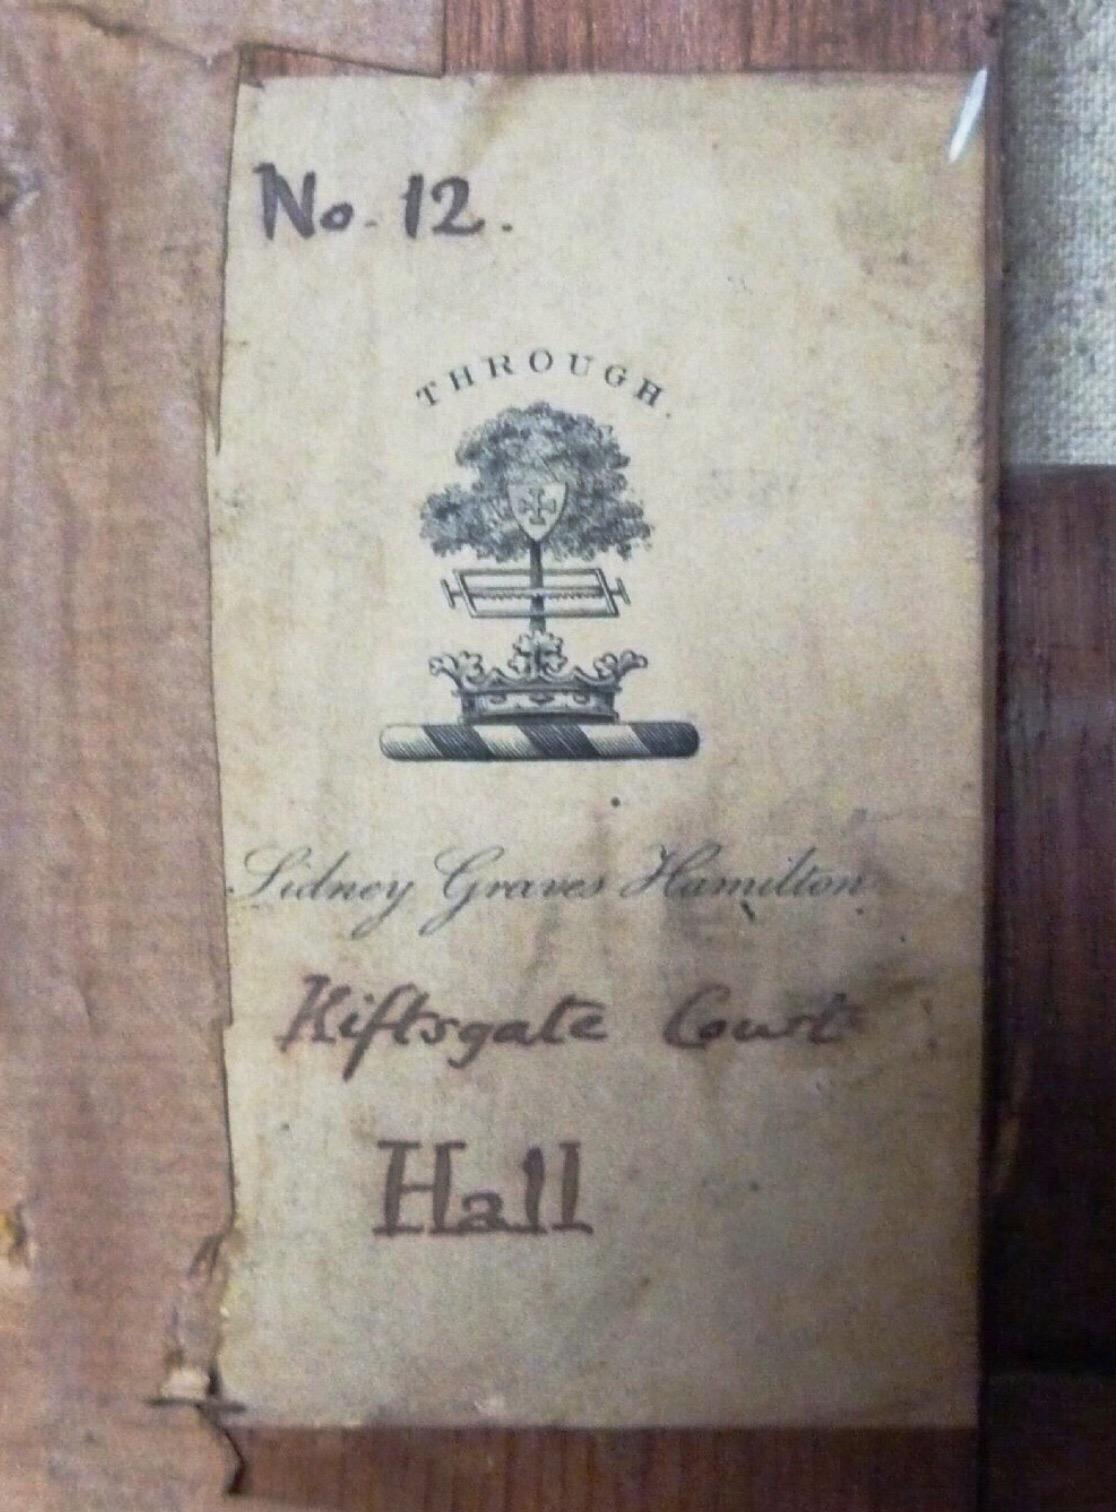 No. 12.
THROUGH.
Sidney Graves Hamilton
Kiftsgate Court
Hall